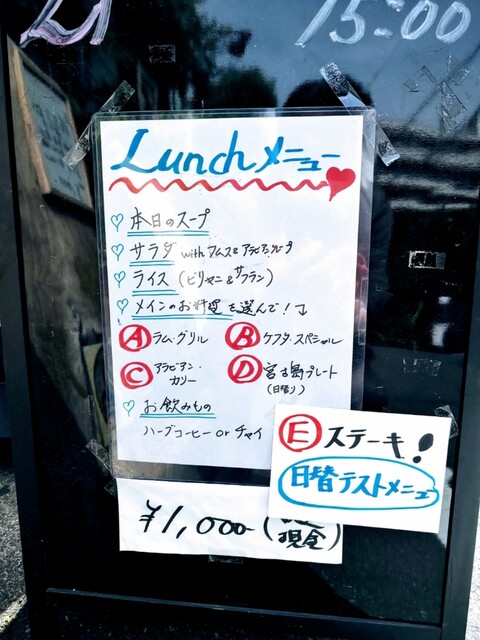 15:00
Lunchメニュー
本日のスープ
サラダ with フムス&アラビアンスープ
ライス (ビリヤニ&サフラン)
メインのお料理を選んで!
A ラム・グリル B ケフタ・スペシャル
C アラビアン・カリー D 宮古島プレート (日替り)
お飲みもの
ハーブコーヒー or チャイ
E ステーキ!
日替テストメニュー
¥1,000 (現金)